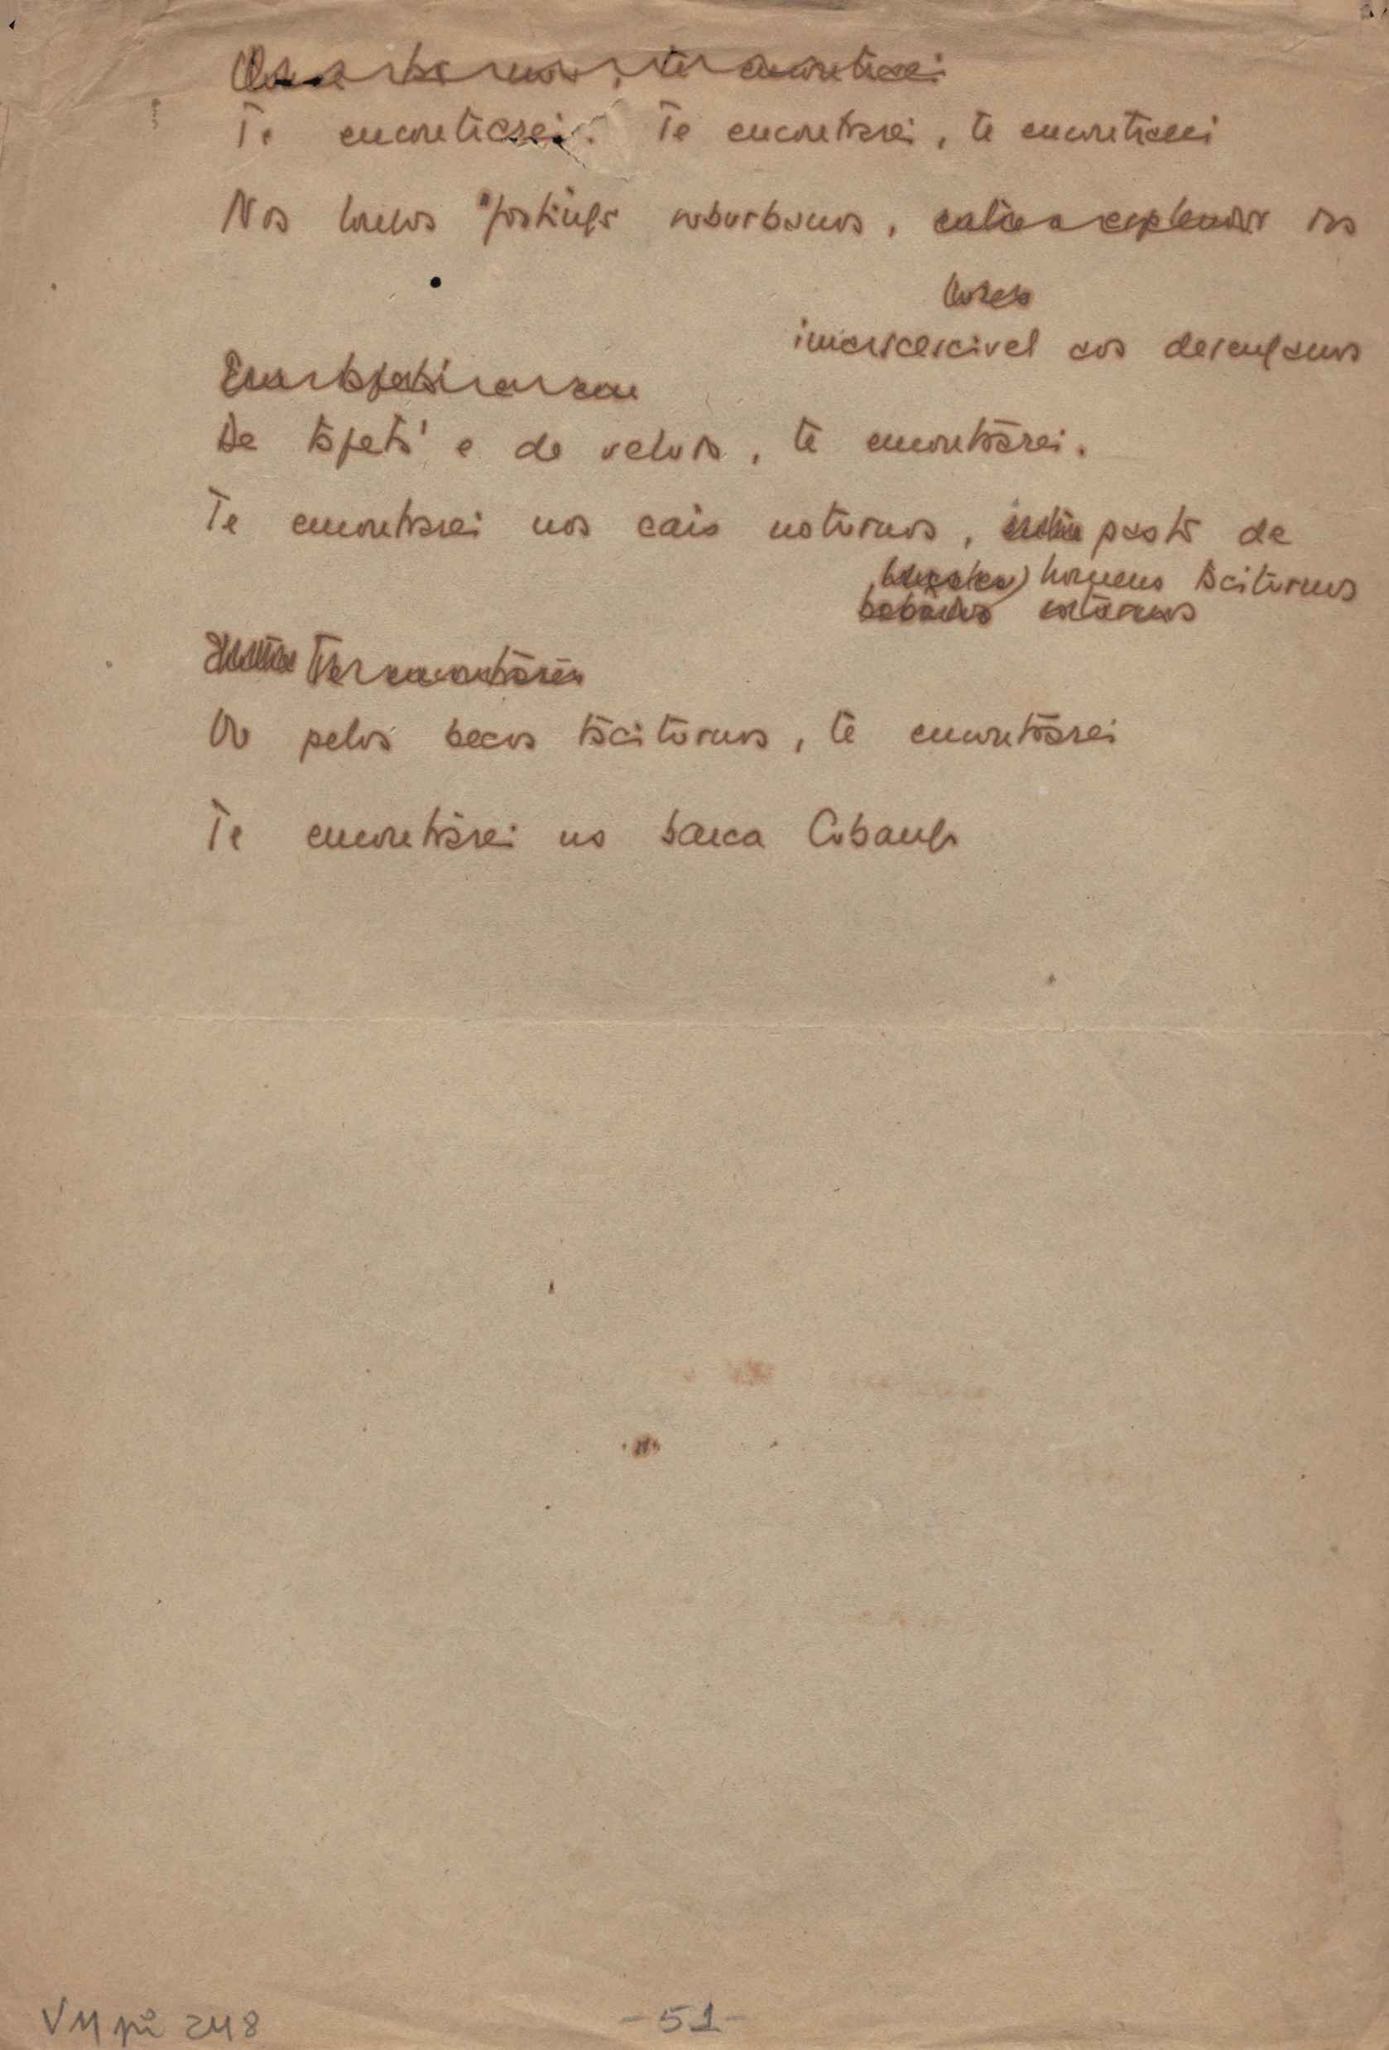 te encontrarei
Te encontrarei. Te encontrarei, te encontrarei
Nos suburbanos, entre o esplendor das
rosas
imarscescivel dos desenganos
De tafetá e de veludo, te encontrarei.
Te encontrarei nos cais noturnos, pasto de
homens taciturnos
noturnos
Te encontrarei
Ou pelos becos taciturnos, te encontrarei
Te encontrarei na barca Cubango
VM pi 248
-51-